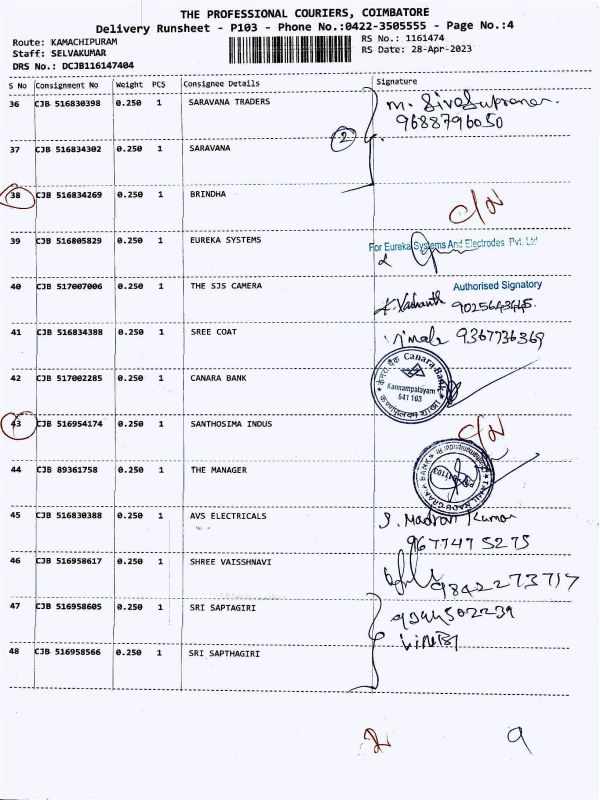 THE PROFESSIONAL COURIERS, COIMBATORE
Delivery Runsheet - P103 - Phone No.:0422-3505555 - Page No.:4
Route: KAMACHIPURAM
RS No.: 1161474
Staff: SELVAKUMAR
RS Date: 28-Apr-2023
DRS No.: DCJB116147404
S No Consignment No Weight PCS Consignee Details Signature
36 CJB 516830398 0.250 1 SARAVANA TRADERS
9688796050
2
37 CJB 516834302 0.250 1 SARAVANA
38 CJB 516834269 0.250 1 BRINDHA
C/N
39 CJB 516805829 0.250 1 EUREKA SYSTEMS
For Eureka Systems And Electrodes Pvt. Ltd
Authorised Signatory
40 CJB 517007006 0.250 1 THE SJS CAMERA
9025643445.
41 CJB 516834388 0.250 1 SREE COAT
9367736369
42 CJB 517002285 0.250 1 CANARA BANK
केनरा बैंक Canara Bank
Kannampalayam
641 103
43 CJB 516954174 0.250 1 SANTHOSIMA INDUS
C/N
44 CJB 89361758 0.250 1 THE MANAGER
TAMIL NADU GRAMA BANK
45 CJB 516830388 0.250 1 AVS ELECTRICALS
S. Madhan Kumar
967747 5275
46 CJB 516958617 0.250 1 SHREE VAISSHNAVI
9842273717
47 CJB 516958605 0.250 1 SRI SAPTAGIRI
48 CJB 516958566 0.250 1 SRI SAPTHAGIRI
2 9